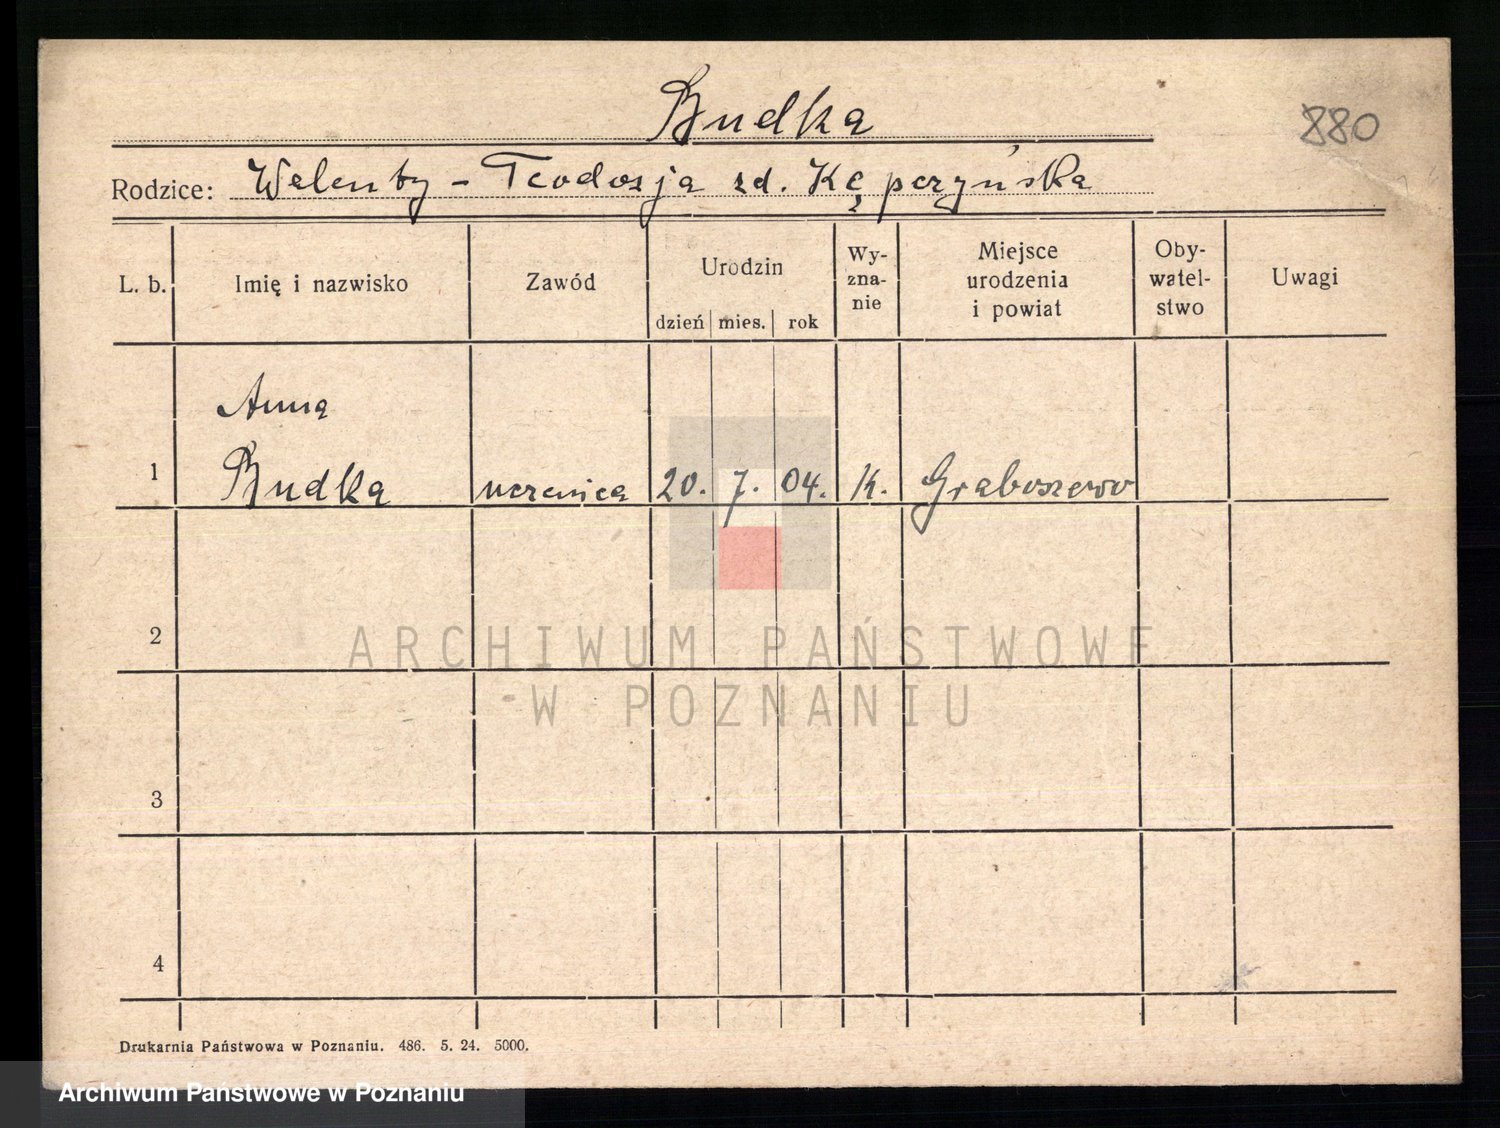 Budka
880
Rodzice: Walenty - Teodozja zd. Kępczyńska
L. b. Imię i nazwisko Zawód Urodzin dzień mies. rok Wy-zna-nie Miejsce urodzenia i powiat Oby-watel-stwo Uwagi
Anna
1 Budka uczenica 20. 7. 04. k. Graboszewo
2
ARCHIWUM PAŃSTWOWE
W POZNANIU
3
4
Drukarnia Państwowa w Poznaniu. 486. 5. 24. 5000.
Archiwum Państwowe w Poznaniu